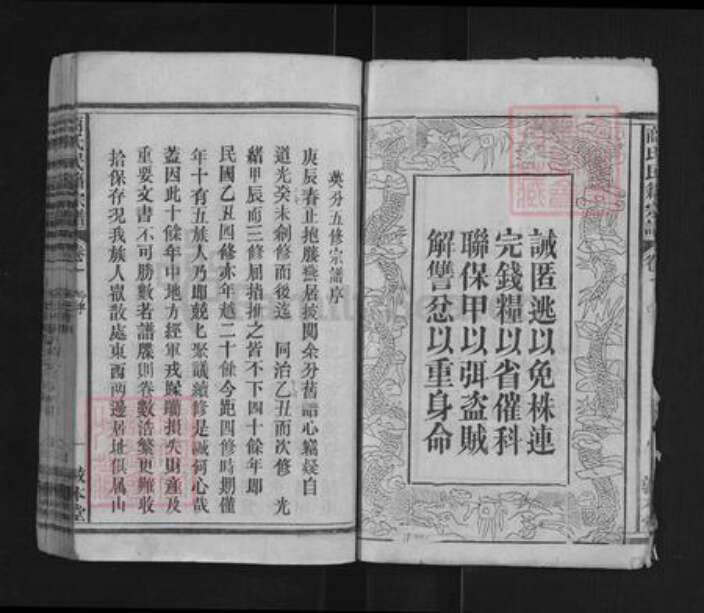 誡匿逃以免株連
完錢糧以省催科
聯保甲以弭盜賊
解讐忿以重身命
英分五修宗譜序
庚辰春止抱殷憂居披閱余分舊譜心竊疑自
道光癸未創修而後迄 同治乙丑而次修 光
緒甲辰而三修屈指推之皆不下四十餘年即
民國乙丑四修亦年越二十餘今距四修時期僅
年十有五族人乃即兢匕聚議續修是誠何心哉
蓋因此十餘年中地方經軍戎蹂躪損失財產及
重要文書不可勝數者譜牒則卷數浩繁更難收
拾保存況我族人嶽散處東西兩邊居址似風山
敬本堂